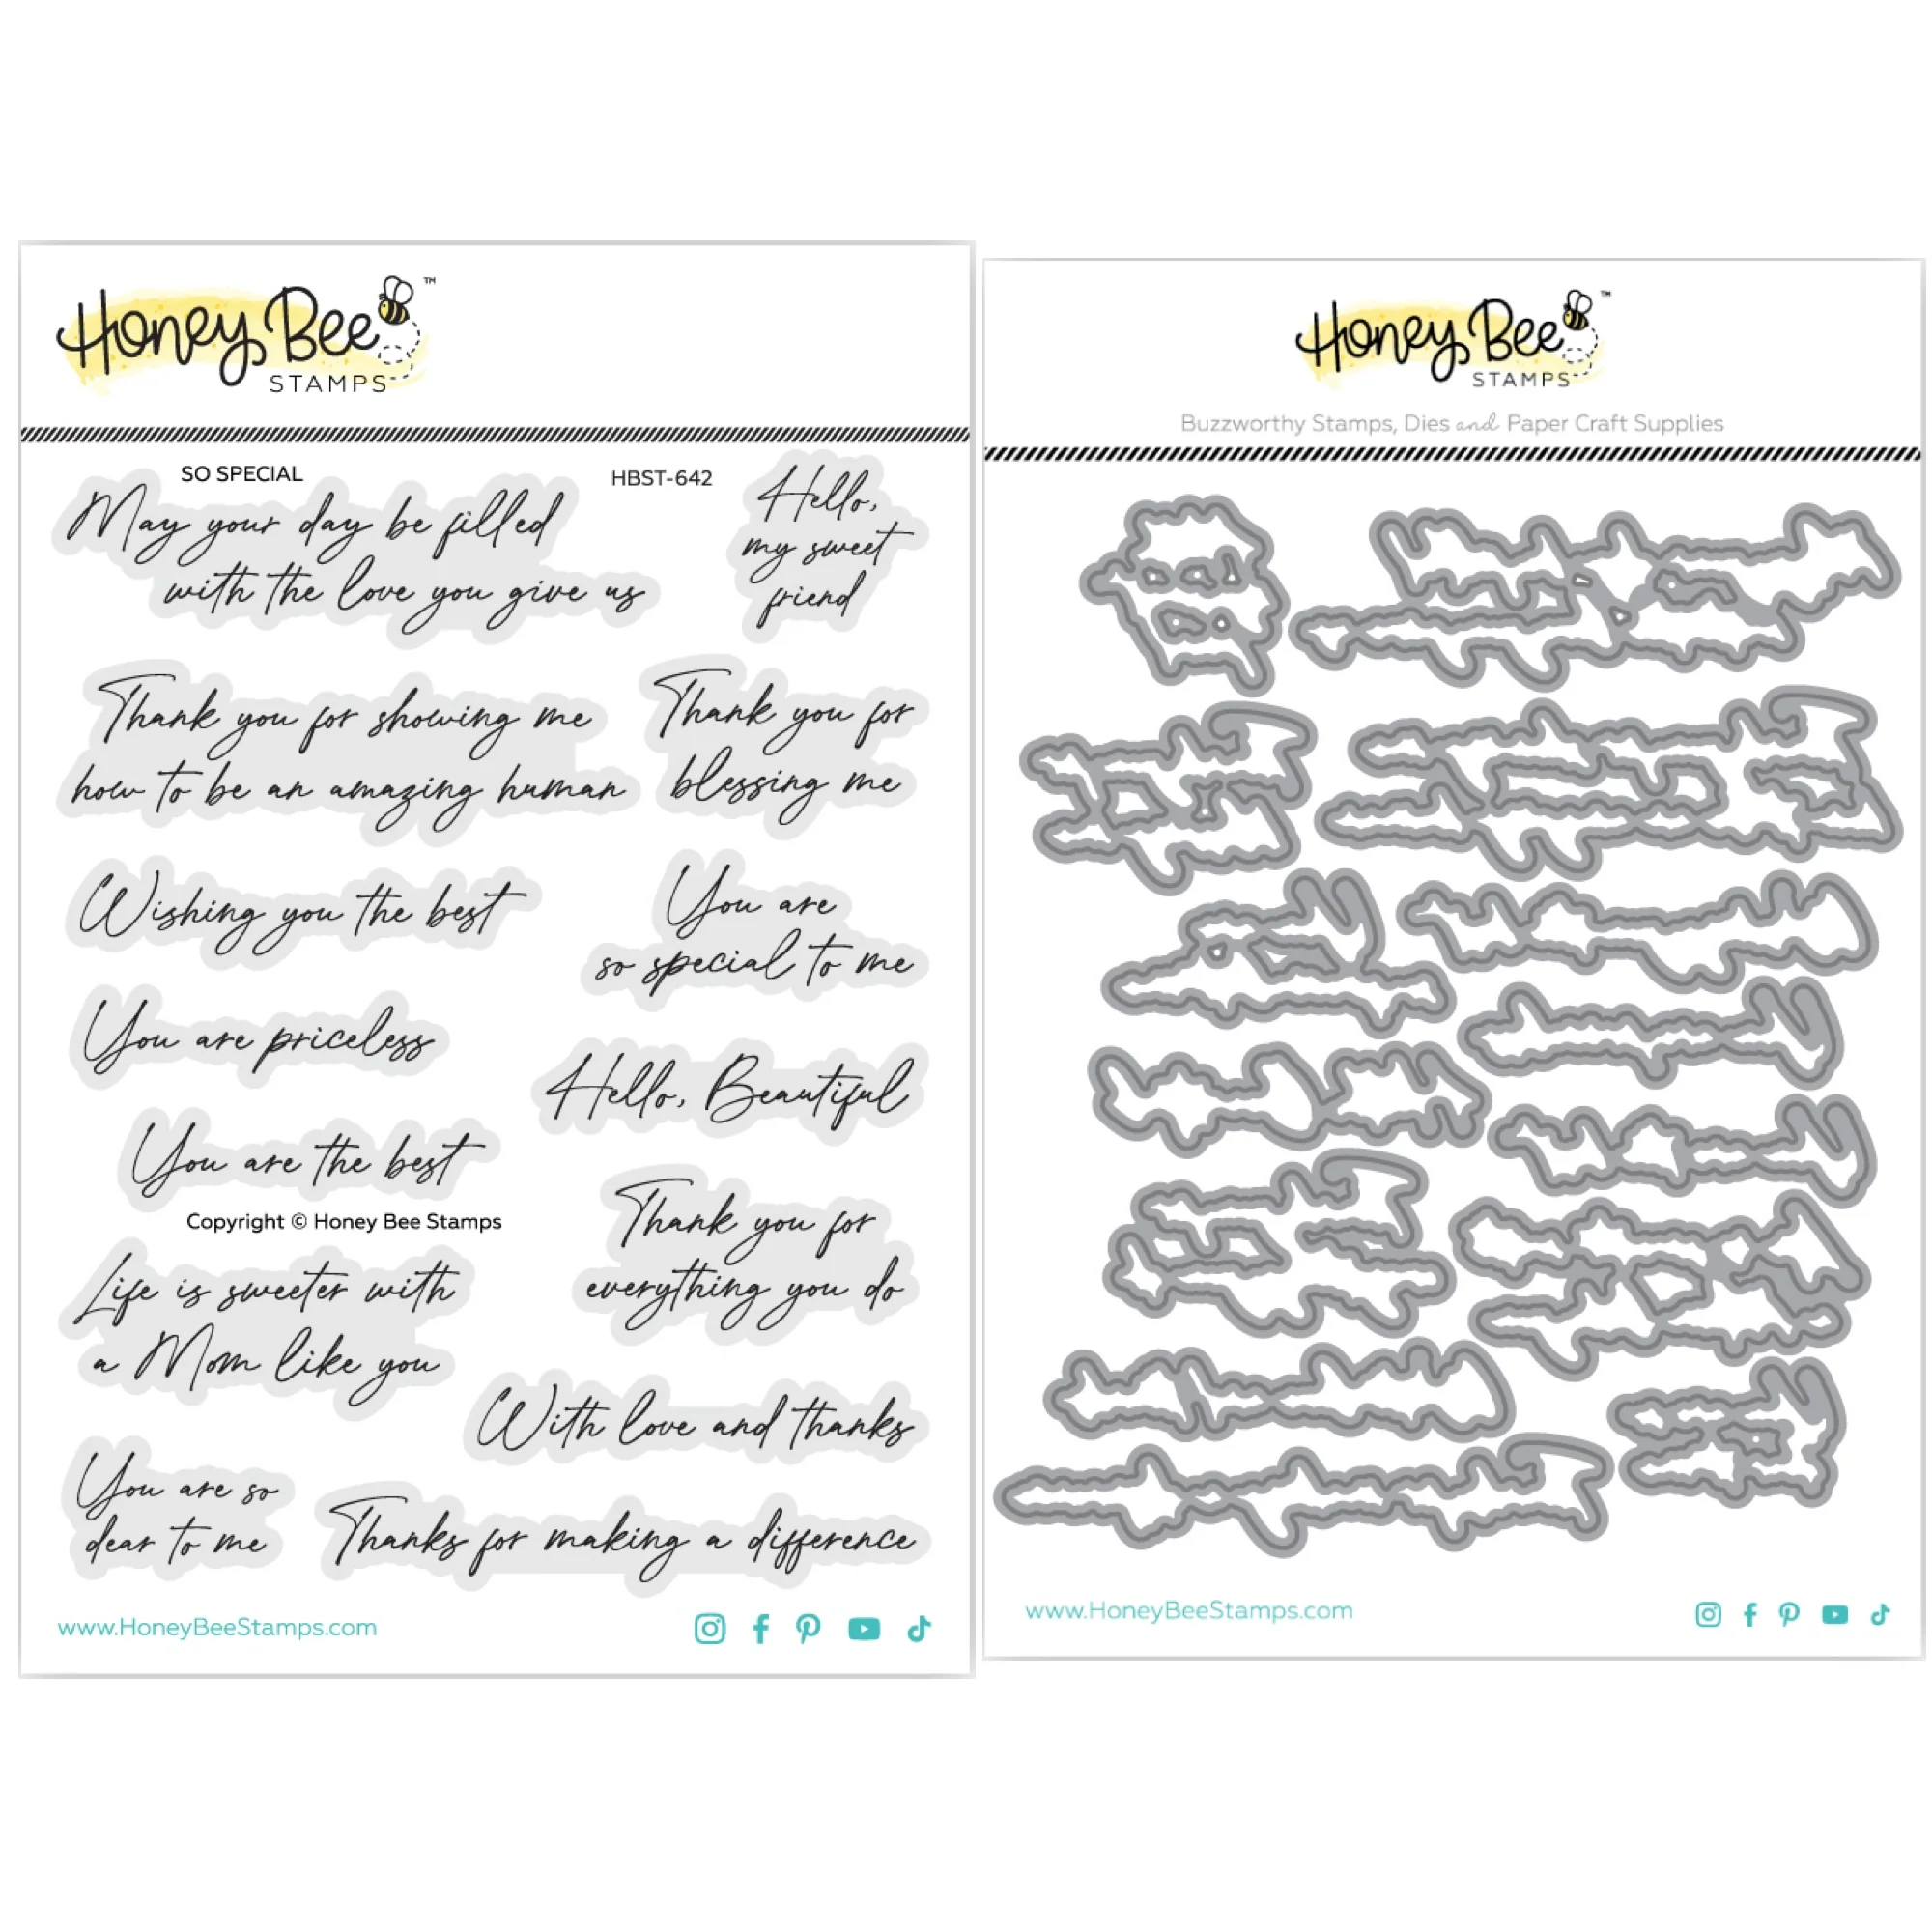 Honey Bee™
STAMPS
SO SPECIAL
HBST-642
May your day be filled
with the love you give us
Hello,
my sweet
friend
Thank you for showing me
how to be an amazing human
Thank you for
blessing me
Wishing you the best
You are
so special to me
You are priceless
Hello, Beautiful
You are the best
Copyright © Honey Bee Stamps
Thank you for
everything you do
Life is sweeter with
a Mom like you
With love and thanks
You are so
dear to me
Thanks for making a difference
www.HoneyBeeStamps.com
Honey Bee™
STAMPS
Buzzworthy Stamps, Dies and Paper Craft Supplies
www.HoneyBeeStamps.com